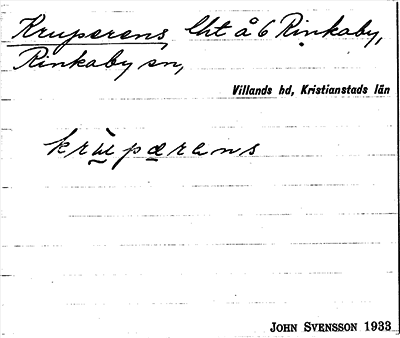 Kruperens, lht å 6 Rinkaby,
Rinkaby sn,
Villands hd, Kristianstads län
JOHN SVENSSON 1933